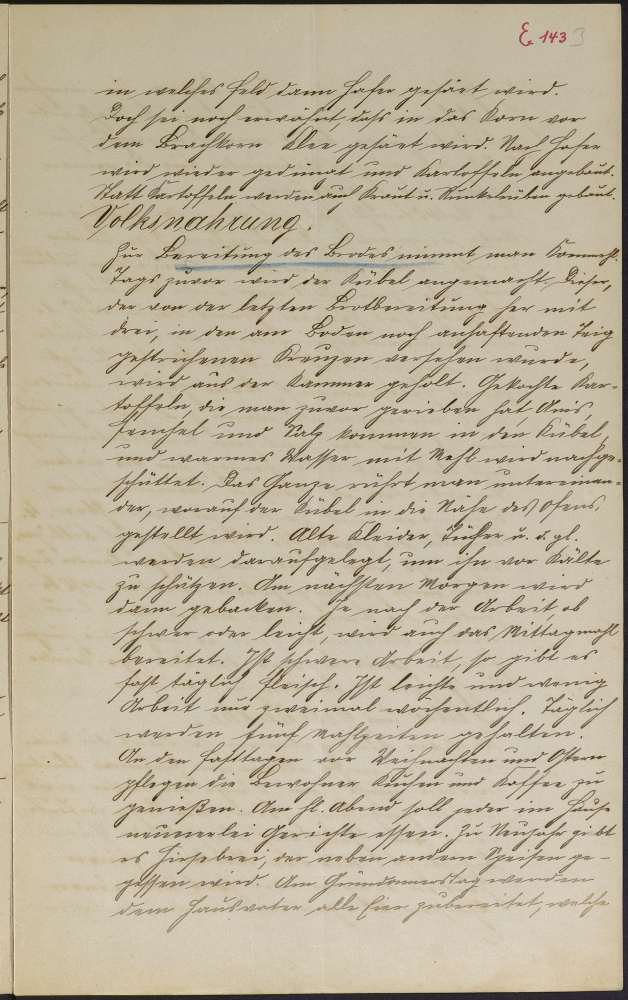 E 143 3
in welches Feld dann Hafer gesäet wird.
Doch sei noch erwähnt, daß in das Korn vor
dem Brachkorn Klee gesäet wird. Nach Hafer
wird wieder gedüngt und Kartoffeln angebaut.
Statt Kartoffeln werden auch Kraut u. Runkelrüben gebaut.
Volksnahrung.
Zur Bereitung des Brodes nimmt man Kornmehl.
Tags zuvor wird der Kübel angemacht. Dieser,
der von der letzten Brotbereitung her mit
drei, in den am Boden noch anhaftenden Teig
gestrichenen Kreuzen versehen wurde,
wird aus der Kammer geholt. Gekochte Kar-
toffeln, die man zuvor gerieben hat, Anis,
Fenchel und Salz kommen in den Kübel
und warmes Wasser mit Mehl wird nachge-
schüttet. Das Ganze rührt man untereinan-
der, worauf der Kübel in die Nähe des Ofens,
gestellt wird. Alte Kleider, Tücher u. s. gl.
werden daraufgelegt, um ihn vor Kälte
zu schützen. Am nächsten Morgen wird
dann gebacken. Je nach der Arbeit, ob
schwer oder leicht, wird auch das Mittagmahl
bereitet. Ist schwere Arbeit, so gibt es
fast täglich Fleisch. Ist leichte und wenig
Arbeit nur zweimal wöchentlich. Täglich
werden fünf Mahlzeiten gehalten.
An den Fasttagen vor Weihnachten und Ostern
pflegen die Bewohner Kuchen und Kaffee zu
genießen. Am hl. Abend soll jeder im Hause
neunerlei Gerichte essen. Zu Neujahr gibt
es Hirsebrei, der neben andern Speisen ge-
gessen wird. Am Gründonnerstag werden
dem Hausvater alle Eier zubereitet, welche